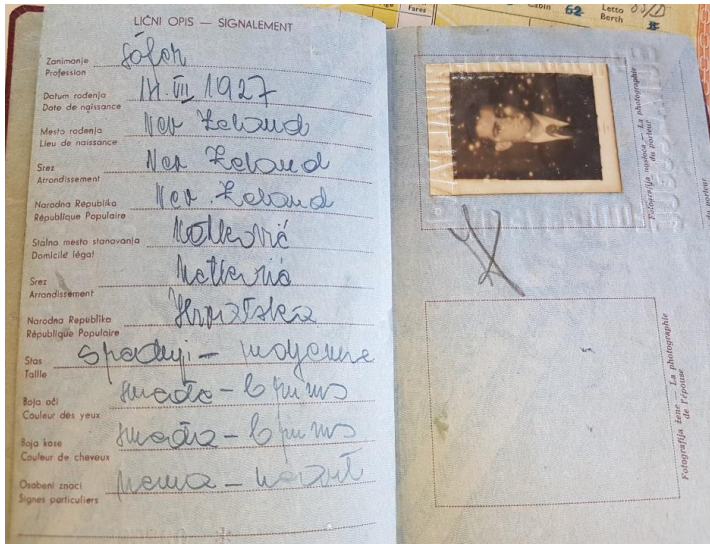 Fares
Cabin 62
Letto
Berth
LIČNI OPIS — SIGNALEMENT
Zanimanje
Profession
šofer
Datum rođenja
Date de naissance
14. VII 1927
Mesto rođenja
Lieu de naissance
Nov Zeland
Srez
Arrondissement
Nov Zeland
Narodna Republika
République Populaire
Nov Zeland
Stalno mesto stanovanja
Domicile légal
Metković
Srez
Arrondissement
Metković
Narodna Republika
République Populaire
Hrvatska
Stas
Taille
srednji — moyenne
Boja oči
Couleur des yeux
smeđe — bruns
Boja kose
Couleur de cheveux
smeđa — bruns
Osobeni znaci
Signes particuliers
nema — neant
Fotografija nosioca — La photographie
du porteur
du porteur
Fotografija žene — La photographie
de l'épouse